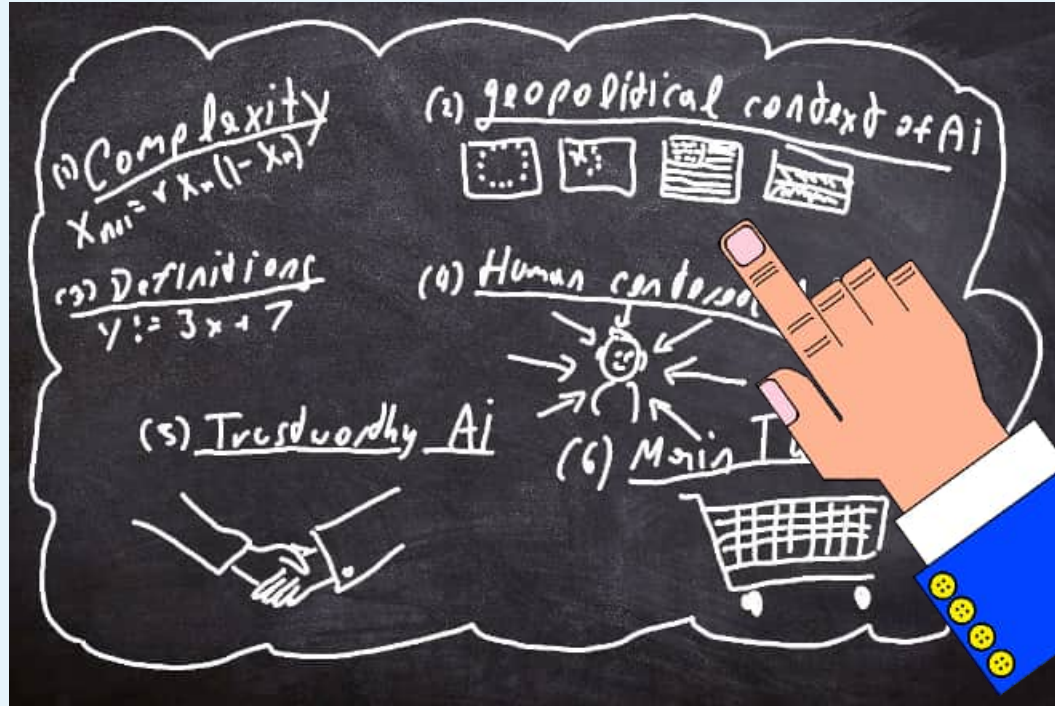 (1) Complexity
Xn+1 = r Xn (1 - Xn)
(2) geopolitical context of Ai
(3) Definitions
y := 3x + 7
(4) Human
(5) Trustworthy Ai
(6)